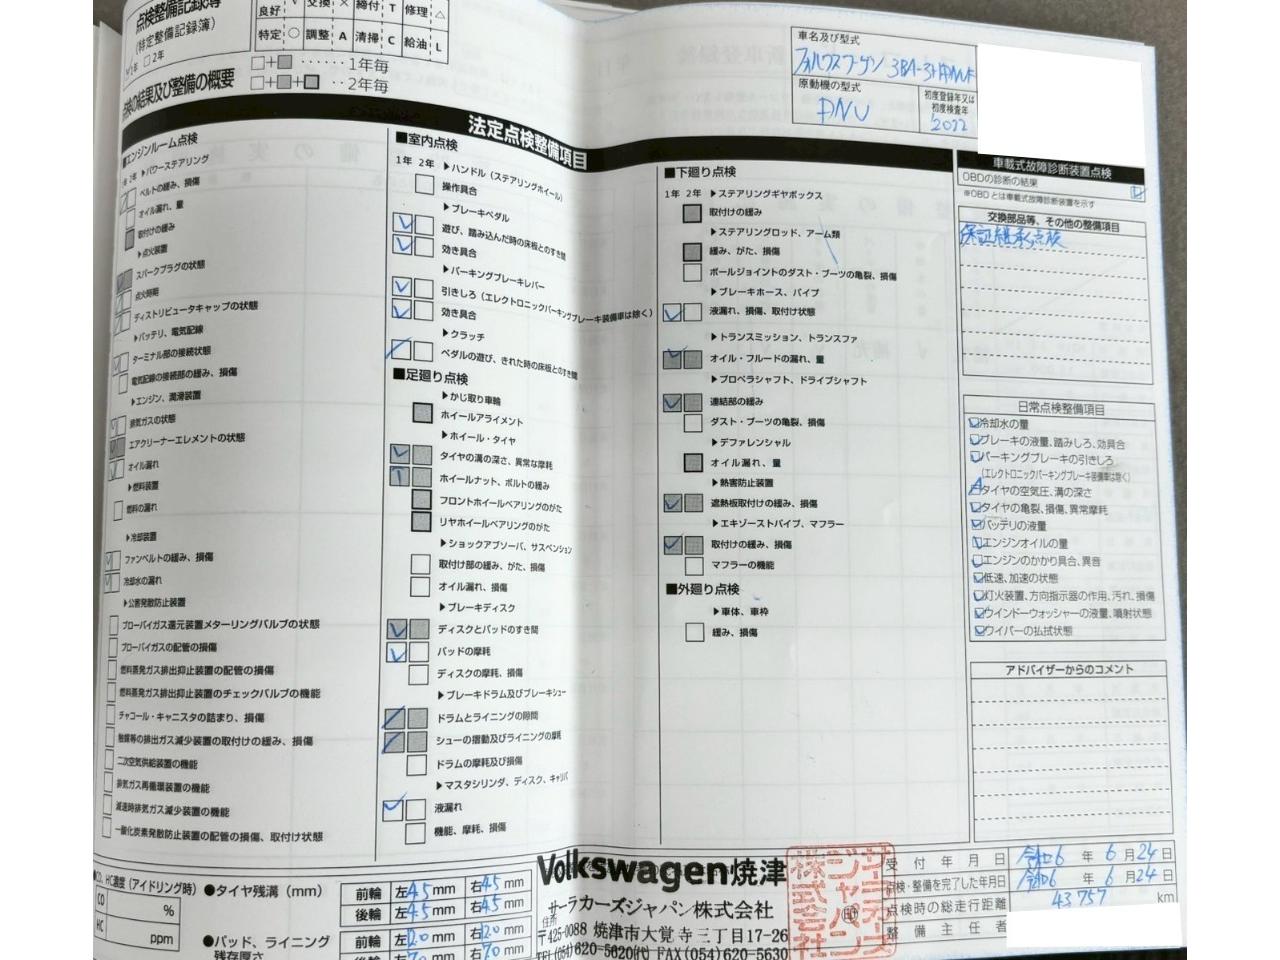 点検整備記録簿
(特定整備記録簿)
良好 ✓ 交換 × 締付 T 修理 △
特定 ○ 調整 A 清掃 C 給油 L
1年 □2年
□+■ ‥‥‥1年毎
□+■+■ ‥2年毎
点検の結果及び整備の概要
車名及び型式
フォルクスワーゲン
原動機の型式
DNU
初度登録年又は
初度検査年
2022
法定点検整備項目
■エンジンルーム点検
1年 2年 ▶パワーステアリング
ベルトの緩み、損傷
オイル漏れ、量
取付けの緩み
▶点火装置
スパークプラグの状態
点火時期
ディストリビュータキャップの状態
▶バッテリ、電気配線
ターミナル部の接続状態
電気配線の接続部の緩み、損傷
▶エンジン、潤滑装置
排気ガスの状態
エアクリーナーエレメントの状態
オイル漏れ
▶燃料装置
燃料の漏れ
▶冷却装置
ファンベルトの緩み、損傷
冷却水の漏れ
▶公害発散防止装置
ブローバイガス還元装置メターリングバルブの状態
ブローバイガスの配管の損傷
燃料蒸発ガス排出抑止装置の配管の損傷
燃料蒸発ガス排出抑止装置のチェックバルブの機能
チャコール・キャニスタの詰まり、損傷
触媒等の排出ガス減少装置の取付けの緩み、損傷
二次空気供給装置の機能
排気ガス再循環装置の機能
減速時排気ガス減少装置の機能
一酸化炭素発散防止装置の配管の損傷、取付け状態
■室内点検
1年 2年 ▶ハンドル（ステアリングホイール）
操作具合
▶ブレーキペダル
遊び、踏み込んだ時の床板とのすき間
効き具合
▶パーキングブレーキレバー
引きしろ（エレクトロニックパーキングブレーキ装備車は除く）
効き具合
▶クラッチ
ペダルの遊び、きれた時の床板とのすき間
■足廻り点検
▶かじ取り車輪
ホイールアライメント
▶ホイール・タイヤ
タイヤの溝の深さ、異常な摩耗
ホイールナット、ボルトの緩み
フロントホイールベアリングのがた
リヤホイールベアリングのがた
▶ショックアブソーバ、サスペンション
取付け部の緩み、がた、損傷
オイル漏れ、損傷
▶ブレーキディスク
ディスクとパッドのすき間
パッドの摩耗
ディスクの摩耗、損傷
▶ブレーキドラム及びブレーキシュー
ドラムとライニングの隙間
シューの摺動及びライニングの摩耗
ドラムの摩耗及び損傷
▶マスタシリンダ、ディスク、キャリパ
液漏れ
機能、摩耗、損傷
■下廻り点検
1年 2年 ▶ステアリングギヤボックス
取付けの緩み
▶ステアリングロッド、アーム類
緩み、がた、損傷
ボールジョイントのダスト・ブーツの亀裂、損傷
▶ブレーキホース、パイプ
液漏れ、損傷、取付け状態
▶トランスミッション、トランスファ
オイル・フルードの漏れ、量
▶プロペラシャフト、ドライブシャフト
連結部の緩み
ダスト・ブーツの亀裂、損傷
▶デファレンシャル
オイル漏れ、量
▶熱害防止装置
遮熱板取付けの緩み、損傷
▶エキゾーストパイプ、マフラー
取付けの緩み、損傷
マフラーの機能
■外廻り点検
▶車体、車枠
緩み、損傷
車載式故障診断装置点検
OBDの診断の結果
※OBDとは車載式故障診断装置を示す
交換部品等、その他の整備項目
保証継承点検
日常点検整備項目
冷却水の量
ブレーキの液量、踏みしろ、効具合
パーキングブレーキの引きしろ
(エレクトロニックパーキングブレーキ装備車は除く)
タイヤの空気圧、溝の深さ
タイヤの亀裂、損傷、異常摩耗
バッテリの液量
エンジンオイルの量
エンジンのかかり具合、異音
低速、加速の状態
灯火装置、方向指示器の作用、汚れ、損傷
ウインドーウォッシャーの液量、噴射状態
ワイパーの払拭状態
アドバイザーからのコメント
●CO、HC濃度（アイドリング時）
CO %
HC ppm
●タイヤ残溝（mm）
前輪 左4.5mm 右4.5mm
後輪 左4.5mm 右4.5mm
●パッド、ライニング
残存厚さ
前輪 左12.0mm 右12.0mm
後輪 左7.0mm 右7.0mm
Volkswagen焼津
サーラカーズジャパン株式会社
住所
〒425-0088 焼津市大覚寺三丁目17-26
℡(054)620-5620代 FAX(054)620-5630
サーラカーズジャパン株式会社
受付年月日 令和6年6月24日
点検・整備を完了した年月日 令和6年6月24日
点検時の総走行距離 43757 km
整備主任者